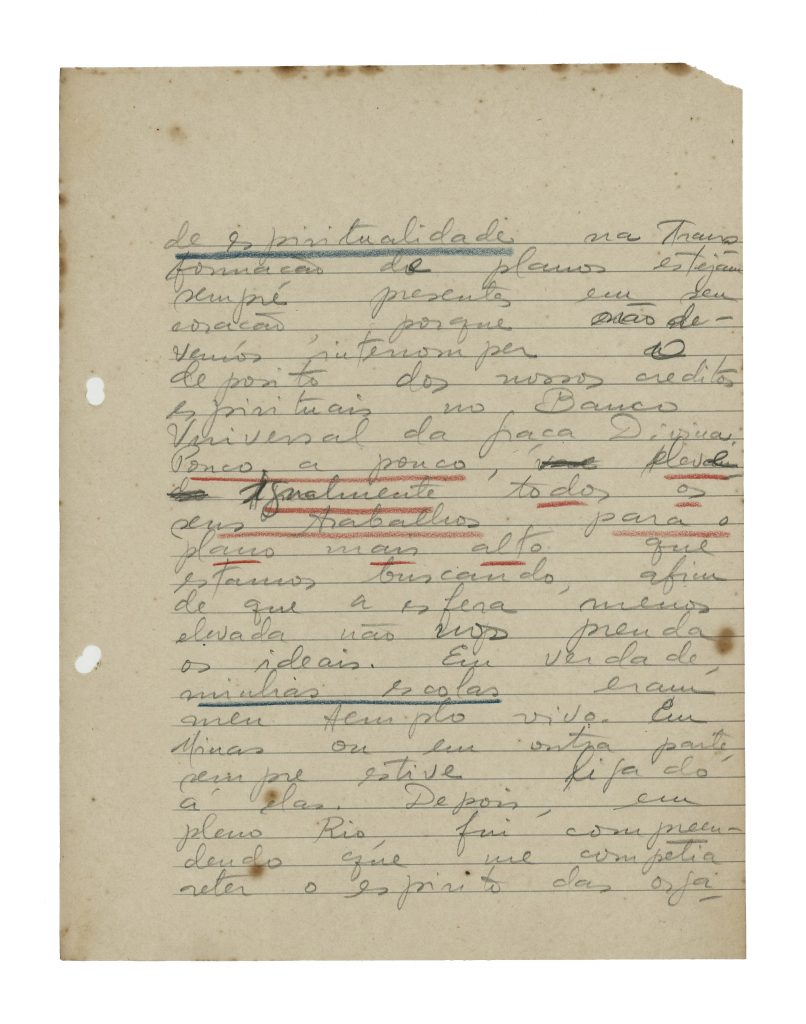 de espiritualidade na Trans
formação de planos estejam
sempre presentes em seu
coração, porque não de-
vemos interromper o
deposito dos nossos creditos
espirituais no Banco
Universal da graça Divina.
Pouco a pouco, eleve
Igualmente todos os
seus trabalhos para o
plano mais alto que
estamos buscando, afim
de que a esfera menos
elevada não nos prenda
os ideais. Em verdade,
minhas escolas eram
meu templo vivo. Em
Minas ou em outra parte,
sempre estive ligado
á elas. Depois, em
pleno Rio, fui compreen-
dendo que me competia
reter o espirito das orga